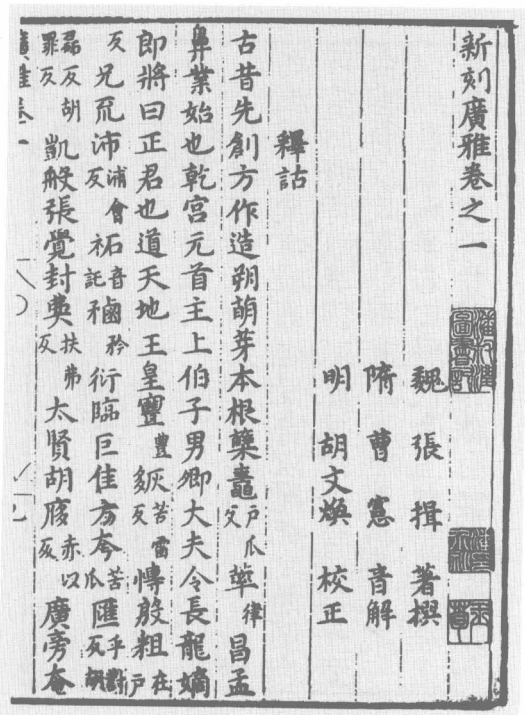 新刻廣雅卷之一
魏張揖著撰
隋曹憲音解
明胡文煥校正
釋詁
古昔先創方作造朔萌芽本根蘖鼃戶瓜反葎律昌孟
鼻業始也乾宮元首主上伯子男卿大夫令長龍嫡
即將曰正君也道天地王皇寷豊㷇苦雷反博殷粗在戶
反兄況沛浦會反祏音託䄷矜衍臨巨佳方夸苦瓜匯乎對反胡
磊反胡罪反凱般張覺封奘扶弗反太賢胡䏽赤以反廣旁奄
廣雅卷一